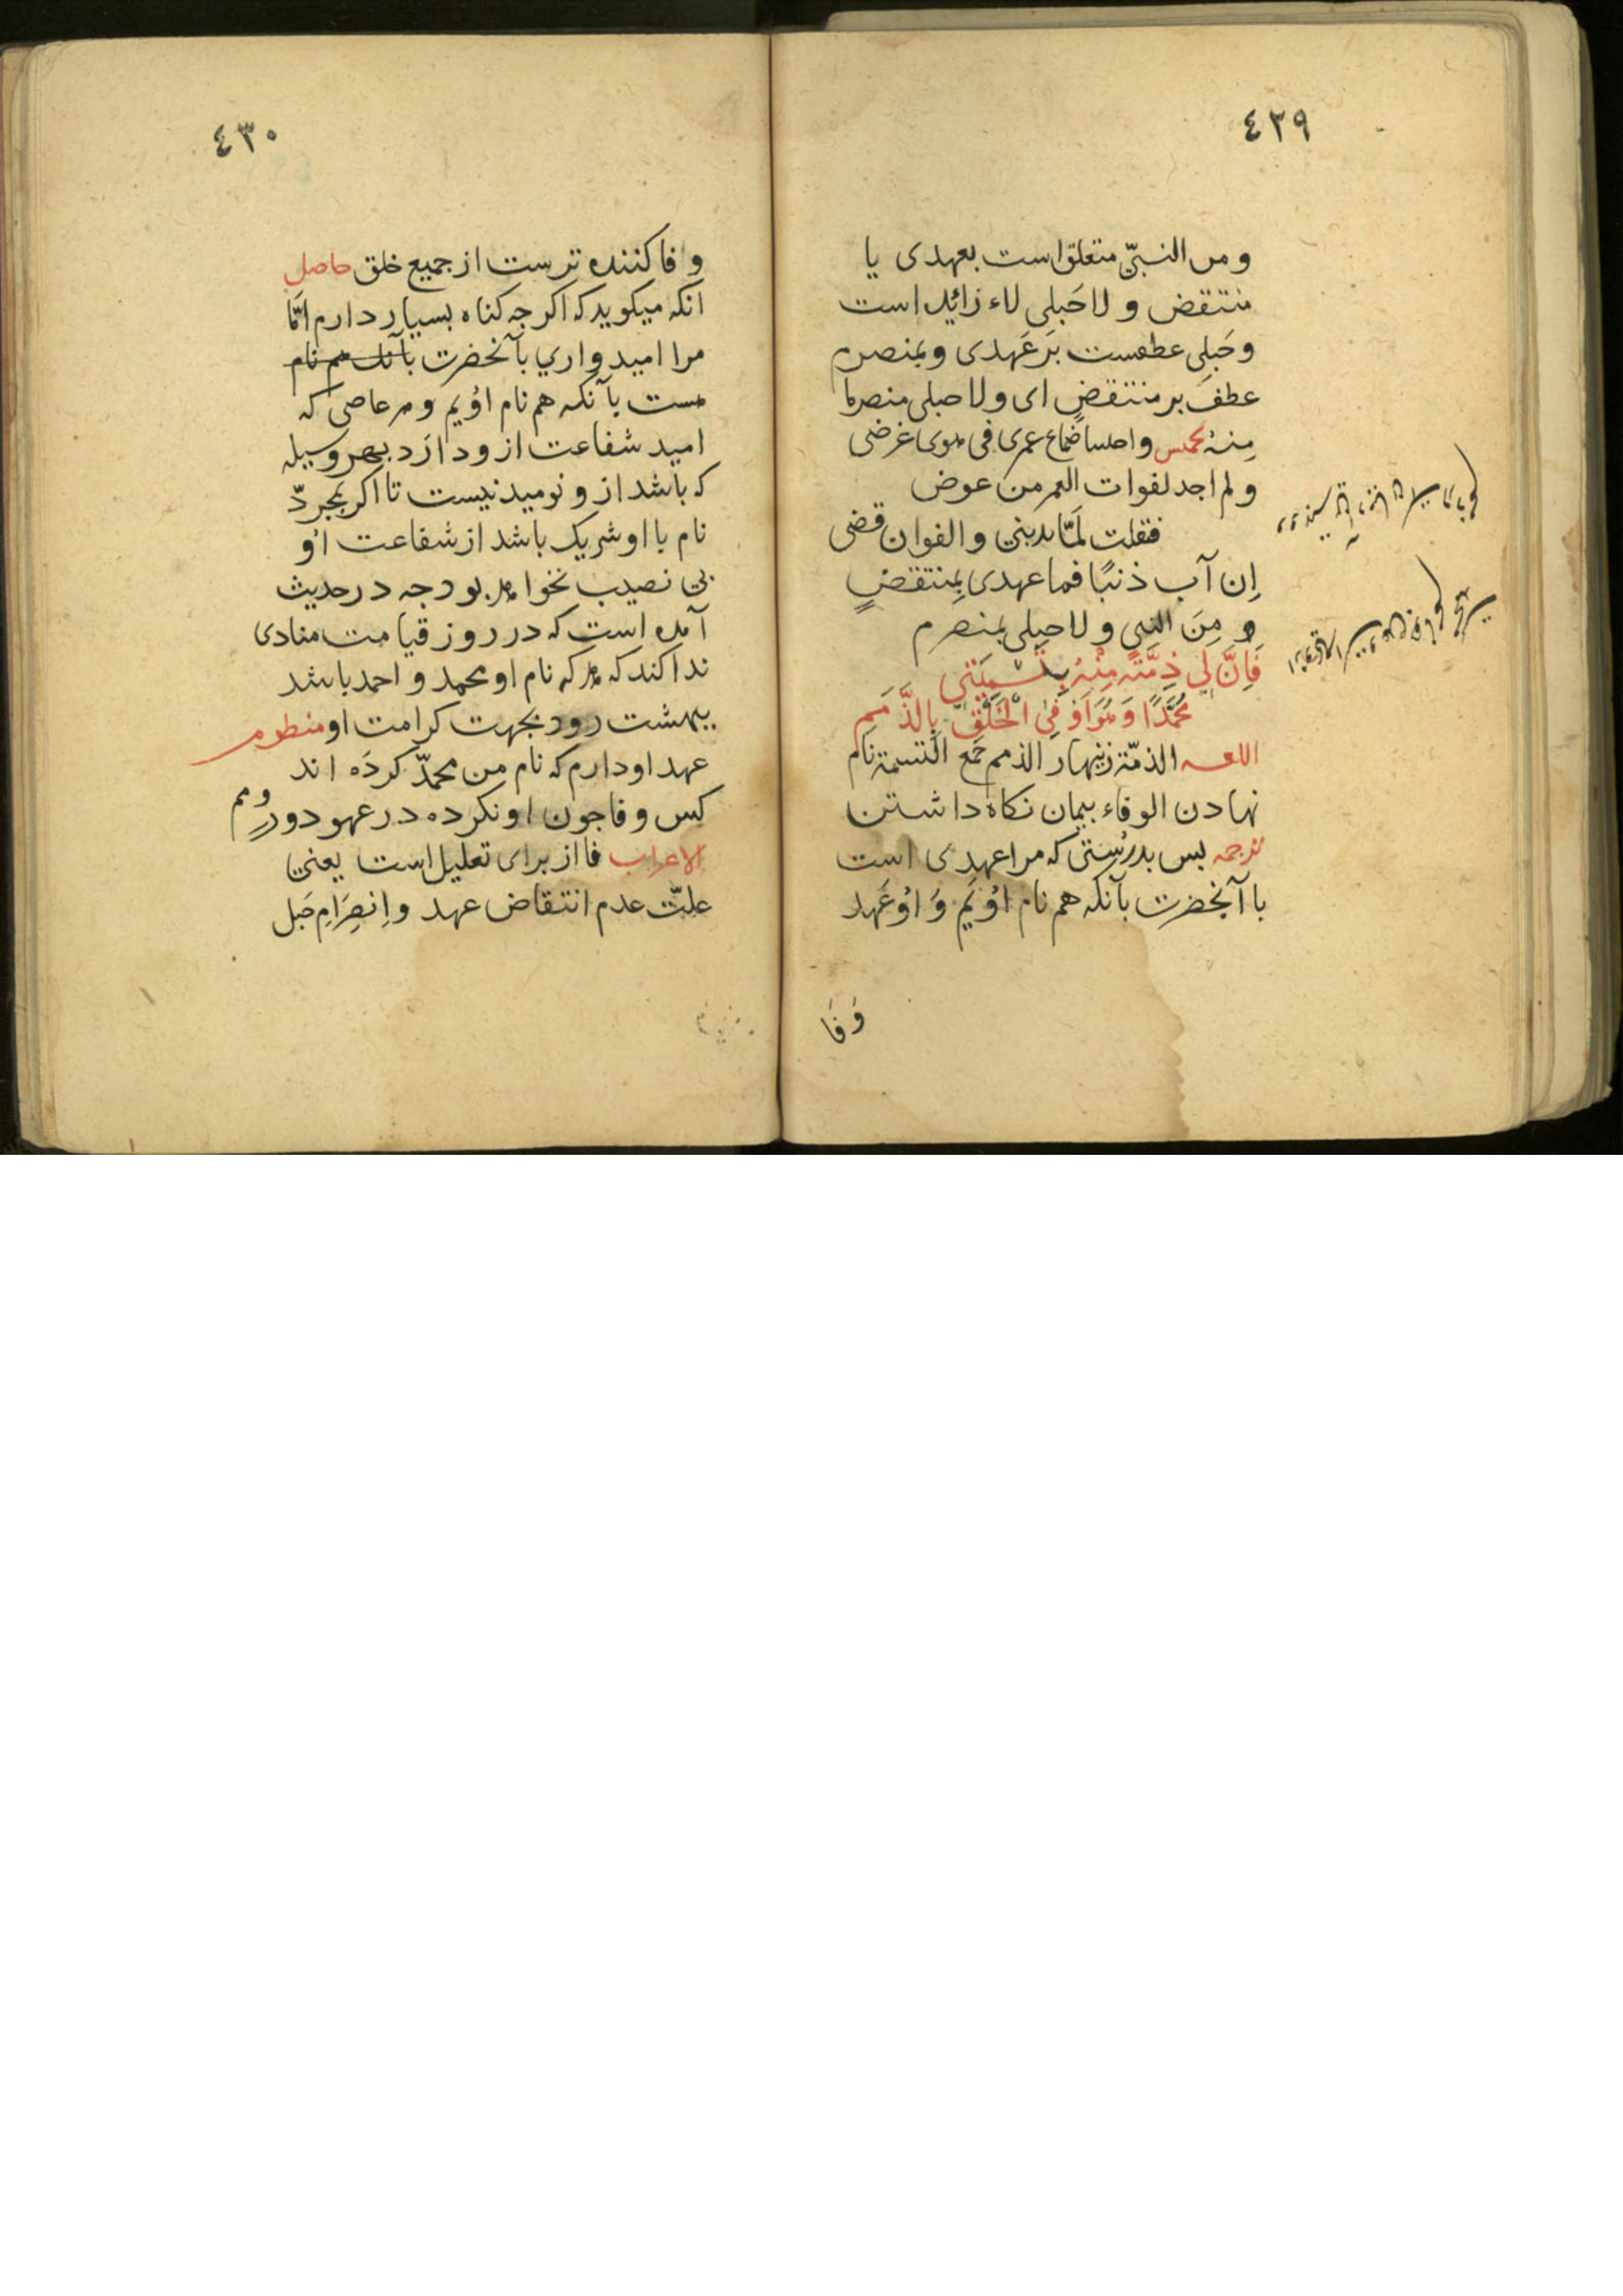 ٤٢٩
و من النبىّ متعلق است بعهدى يا
منتقض و لا حَبلى لاء زائد است
و حَبلى عطفست بَر عَهدى و بمنصرم
عطفَ بر منتقضٍ اى و لا حبلى منصرما
مِنهُ مخمس ضاع عمرى فى هوى غرضى
و لم اجد لفوات العمر من عوض
فقلت لمّا بدينى و الفوان قضى
اِن آب ذنبًا فما عهدى بِمنتقضٍ
و مِنَ النبي و لا حبلى بمنصرم
فَاِنَّ لِى ذِمَّتَه مِنْهُ بِتَسْمِيَتِي
مُحَمَّدًا وَ هُوَ اَوْفَى الْخَلْقِ بِالذَّمَمِ
اللغه الذمّة زينهار الذمم جَمع التسمة نام
نهادن الوفاء بيمان نكاه داشتن
ترجمه بس بدرُستى كه مرا عهدى است
با آنحضرت بآنكه هم نام اوُيَم وَ اوُ عَهد
وَفَا
٤٣٠
وفا كننده ترست از جميع خلق حاصل
انكه ميكويد كه اكر جه كناه بسيار دارم اَمّا
مرا اميدواري بآنحضرت بآنك هم نام
هست بآنكه هم نام اوُيم و هر عاصى كه
اميد شفاعت ازو دارَد بهر وسيله
كه باشد ازو نوميد نيست تا اكر بمجردّ
نام با او شريك باشد از شفاعت اوُ
بى نصيب نخواهد بود جه در حديث
آمده است كه در روز قيامت منادى
ندا كند كه هر كه نام او محمد و احمد باشد
ببهشت رود بجهت كرامت او منظوم
عهد او دارم كه نام من محمدّ كردَه اند
كس وفا جون او نكرده در عهود و در ذمم
الاعراب فا از براى تعليل است يعنى
علتّ عدم انتقاض عهد و اِنصِرَامِ حَبل